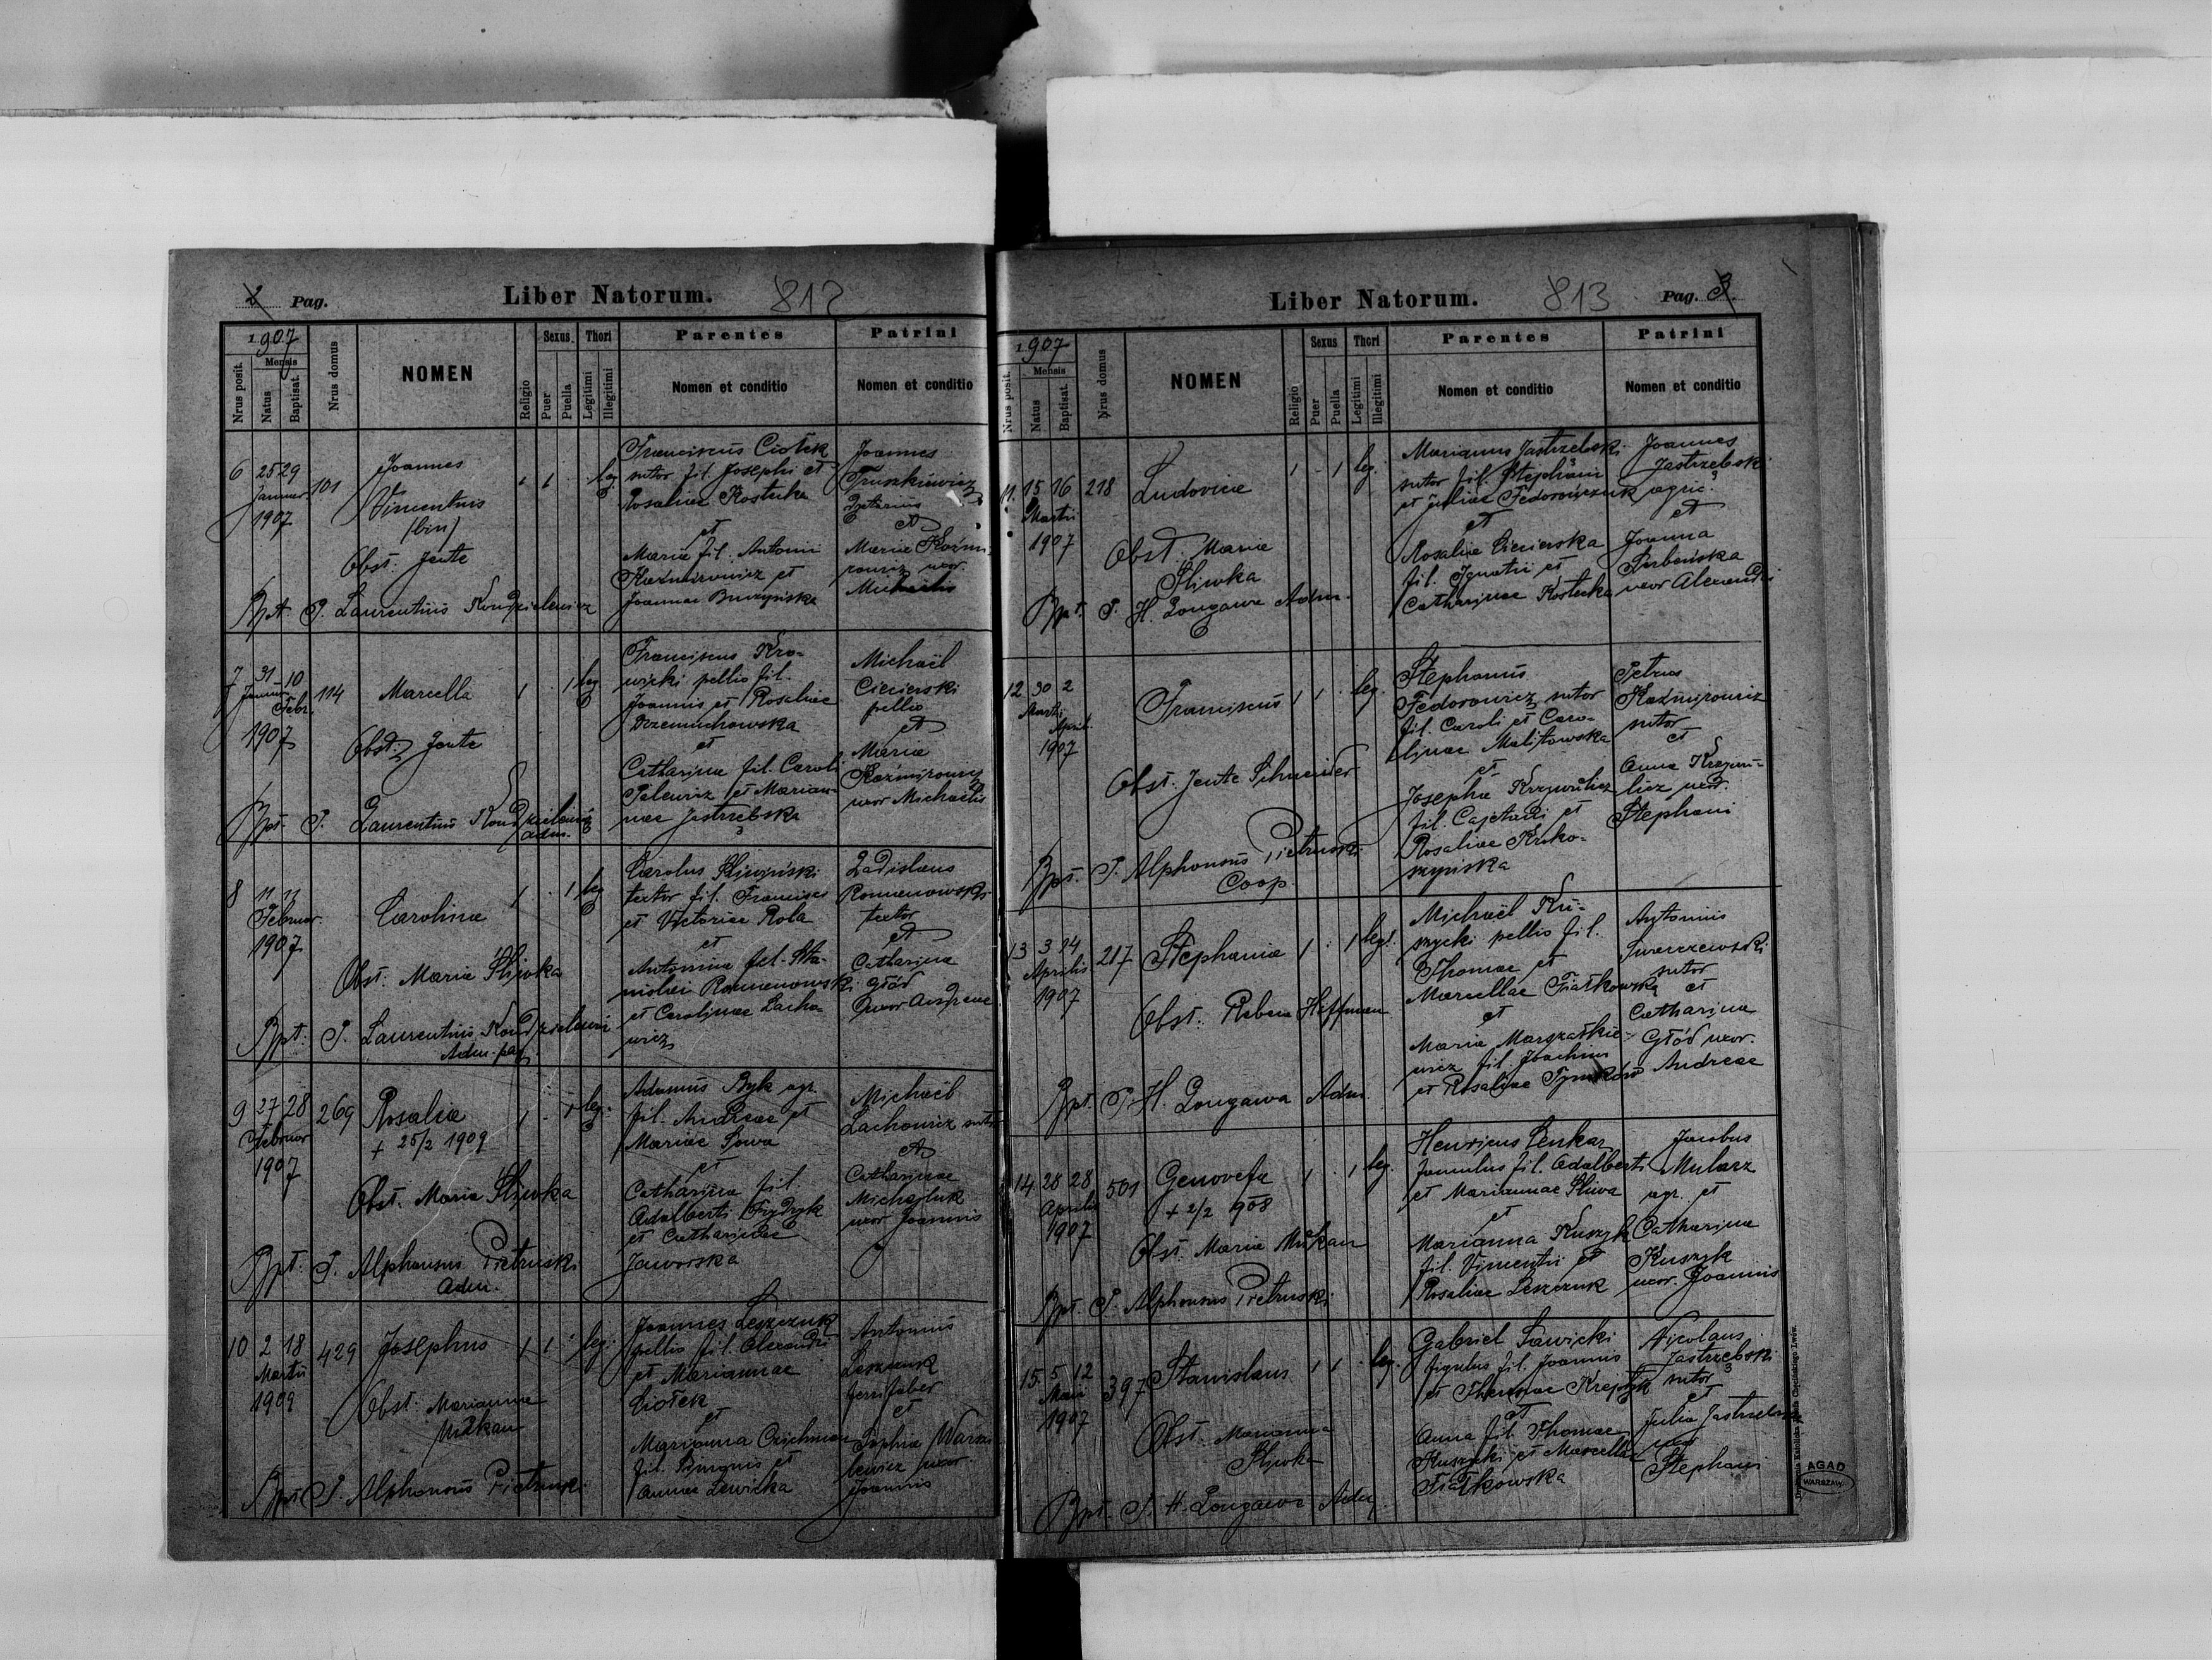 2 Pag.
Liber Natorum.
812
1907
Nrus posit.
Mensis
Natus
Baptisat.
Nrus domus
NOMEN
Religio
Sexus
Puer
Puella
Thori
Legitimi
Illegitimi
Parentes
Nomen et conditio
Patrini
Nomen et conditio
6 25 29 101
Januar
1907
Joannes
Vincentius
(bin)
Obst. Jente
1 1 leg
Franciscus Ciołek
sutor fil. Josephi et
Rosaliae Kostecka
et
Maria fil. Antonii
Kaźmirowicz et
Joannae Buczyńska
Joannes
Truszkiewicz
et
Maria Kaźmi-
rowicz uxor.
Michaelis
Bpt. P. Laurentius Kondzielewicz
7 31 10 114
Januar Febr.
1907
Marcella
Obst. Jente
1 1 leg
Franciscus Kra-
wicki pellio fil.
Joannis et Rosaliae
Drzemuchowska
et
Catharina fil. Caroli
Pelewicz et Marian-
nae Jastrzębska
Michaël
Cicierski
pellio
et
Maria
Kaźmirowicz
uxor Michaelis
Bpt. P. Laurentius Kondzielewicz
adm.
8 11 17
Februar.
1907
Carolina
Obst. Maria Śliwka
1 1 leg
Carolus Śliwiński
textor fil. Francisci
et Victoriae Rola
et
Antonina fil. Sta-
nislai Romanowski
et Carolinae Lacho-
wicz
Ladislaus
Romanowski
textor
et
Catharina
Głód
uxor Andreae
Bpt. P. Laurentius Kondzielewicz
Adm. par.
9 27 28 269
Februar
1907
Rosalia
+ 25/2 1909
Obst. Maria Śliwka
1 1 leg.
Adamus Byk agr.
fil. Andreae et
Mariae Sowa
et
Catharina fil.
Adalberti Frydryk
et Catharinae
Jaworska
Michaël
Lachowicz sutor
et
Catharinae
Michajluk
uxor Joannis
Bpt. P. Alphonsus Pietruski
Adm.
10 2 18 429
Martii
1909
Josephus
Obst. Marianna
Mükan
1 1 leg.
Joannes Leszczuk
pellio fil. Alexandri
et Mariannae
Ciołek
et
Marianna
fil. Simonis et
Annae Lewicka
Antonius
Leszczuk
ferrifaber
et
Sophia
uxor.
Joannis
Bpt. P. Alphonsus Pietruski
Liber Natorum.
813
Pag. 3.
1907
Nrus posit.
Mensis
Natus
Baptisat.
Nrus domus
NOMEN
Religio
Sexus
Puer
Puella
Thori
Legitimi
Illegitimi
Parentes
Nomen et conditio
Patrini
Nomen et conditio
11. 15 16 218
Martii
1907
Ludovica
Obst. Maria
Śliwka
1 - 1 leg.
Marianus Jastrzebski
sutor fil. Stephani
et Juliae Fedorowiczuk
et
Rosalia Cicierska
fil. Ignatii et
Catharinae Kostecka
Joannes
Jastrzebski
agric.
et
Joanna
uxor Alexandri
Bpt. P. H. Longawa Adm.
12 30 2
Martii April.
1907
Franciscus
Obst. Jente Schneider
1 1 leg.
Stephanus
Fedorowicz sutor
fil. Caroli et Caro-
linae Malitowska
et
Josepha Krzywulicz
fil. Cajetani et
Rosaliae Kroko-
szyńska
Petrus
Kaźmirowicz
sutor
et
Anna Krzywu-
licz uxor.
Stephani
Bpt. P. Alphonsus Pietruski
Coop.
13 3 14 217
Aprilis
1907
Stephania
Obst. Hoffman
1 1 leg.
Michaël Kru-
szycki pellio fil.
Thomae et
Marcellae Fiałkowska
et
Maria Marszałkie-
wicz fil. Joachim
et Rosaliae
Antonius
Swarczewski
sutor
et
Catharina
Głód uxor.
Andreae
Bpt. P. H. Longawa Adm.
14 28 28 501
Aprilis
1907
Genovefa
+ 2/2 908
Obst. Maria Mükan
1 1 leg.
Henricus Lenkar
famulus fil. Adalberti
et Mariannae Śliwa
et
Marianna Kuszyk
fil. Vincentii et
Rosaliae Leszczuk
Jacobus
Mularz
agr. et
Catharina
Kuszyk
uxor. Joannis
Bpt. P. Alphonsus Pietruski
15. 5 12 397
Maii
1907
Stanislaus
Obst. Marianna
Śliwka
1 1 leg.
Gabriel Sawicki
figulus fil. Joannis
et
et
Anna fil. Thomae
Kuszycki et Marcellae
Fiałkowska
Nicolaus
Jastrzębski
sutor
et
Julia Jastrzebska
uxor
Stephani
Bpt. P. H. Longawa Adm.
AGAD
WARSZAWA